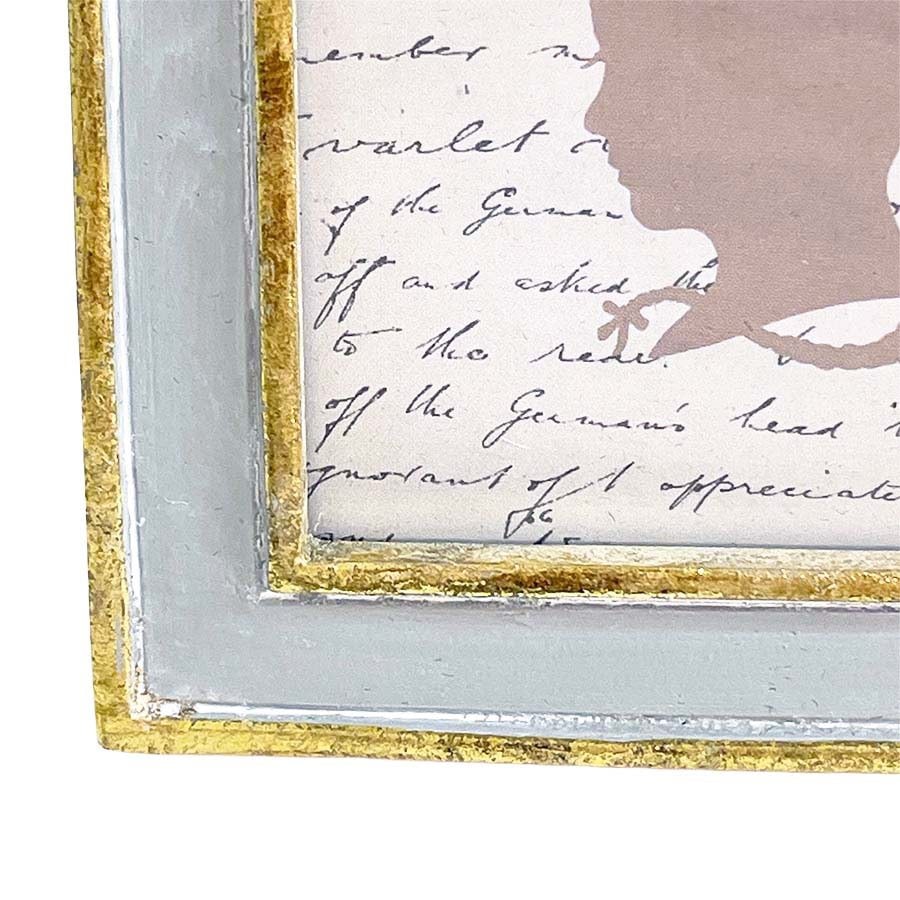 ember
varlet
of the German
off and asked the
to the rear.
off the German's head
ignorant of I appreciate
66